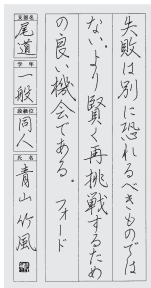 失敗は別に恐れるべきものでは
ない。より賢く再挑戦するため
の良い機会である。 フォード
支部名 尾道
学年 一般
段級位 同人
氏名 青山竹風